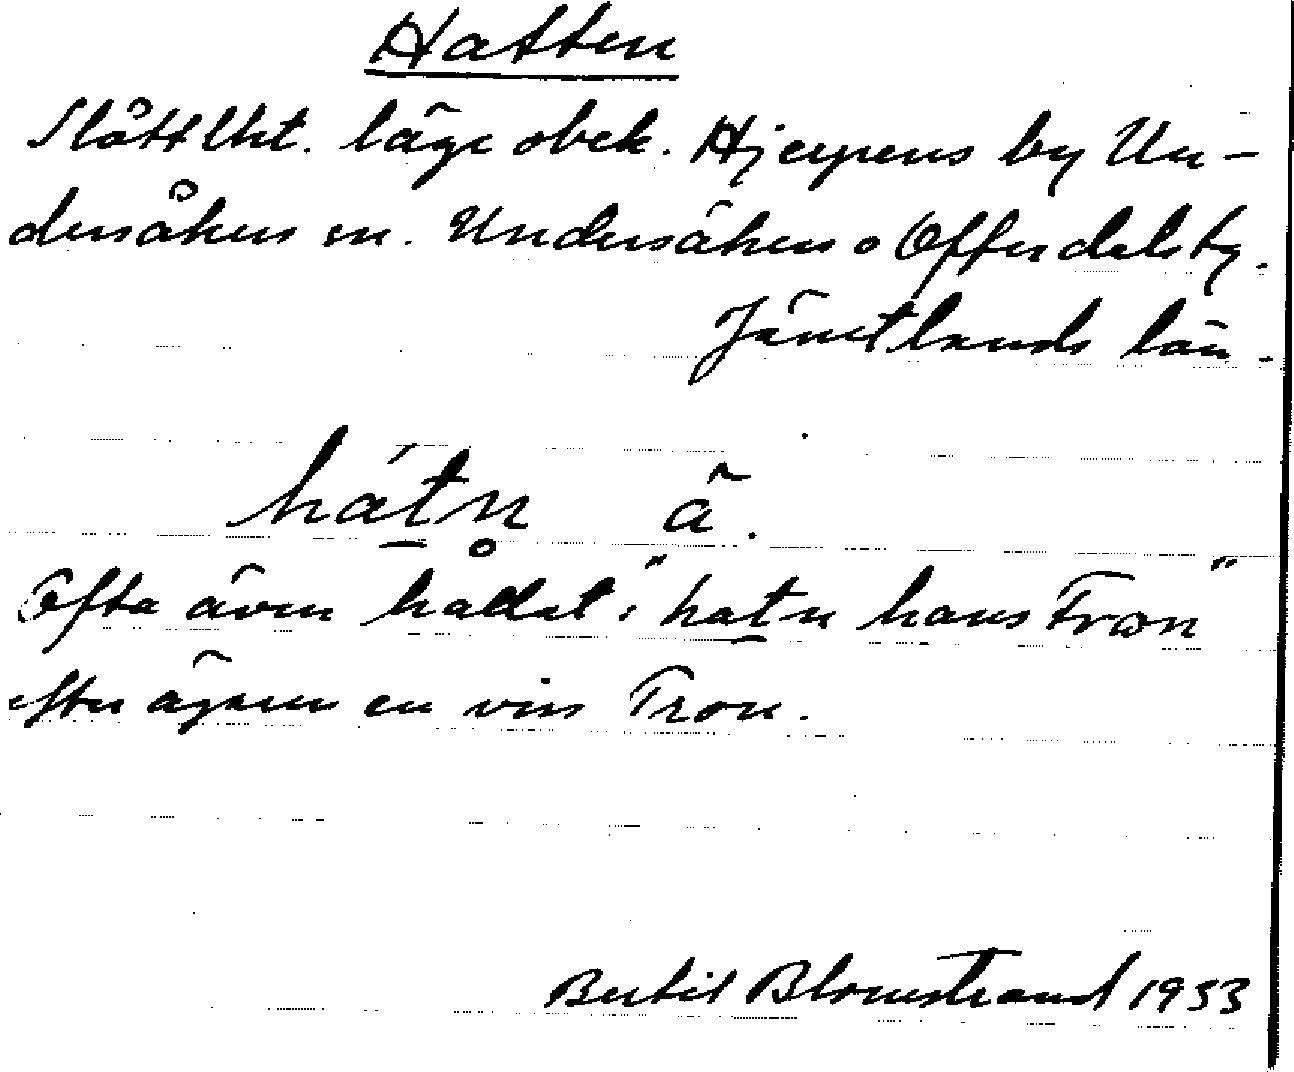 Hatten
Slåttlht. läge obek. Hjerpens by Un-
dersåkers sn. Undersåkers o Offerdals tg.
Jämtlands län.
há̱tn̥ ä.
Ofta även kallat: "hat̠n hans Tron"
efter ägaren en viss Tron.
Bertil Blomstrand 1933